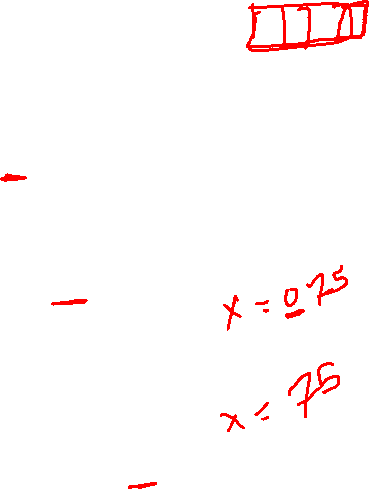 x = 075
x = 75